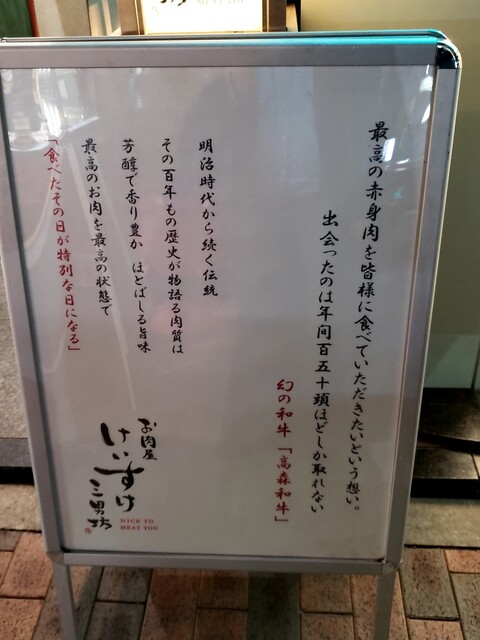 最高の赤身肉を皆様に食べていただきたいという想い。
出会ったのは年間百五十頭ほどしか取れない
幻の和牛「高森和牛」
明治時代から続く伝統
その百年もの歴史が物語る肉質は
芳醇で香り豊か ほとばしる旨味
最高のお肉を最高の状態で
「食べたその日が特別な日になる」
お肉屋
けいすけ
三男坊
NICE TO
MEAT YOU